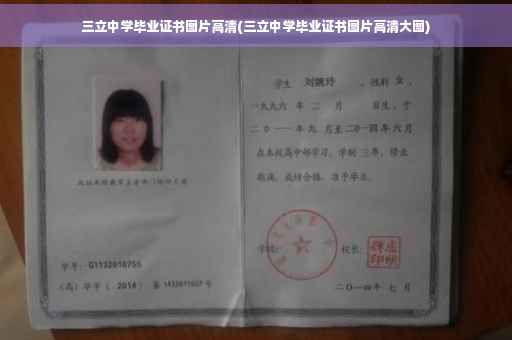 三立中学毕业证书图片高清(三立中学毕业证书图片高清大图)
学生 刘婉玲 ，性别 女 ，
一九九六 年 二 月 日生，于
二〇一一年九 月至二〇一四年六月
在本校高中部学习，学制 三年，修业
期满，成绩合格，准予毕业。
学校：
校长：
学号：G1132010755
(高) 毕字 ( 2014 ) 第 1432011027 号
二〇一四年 七 月